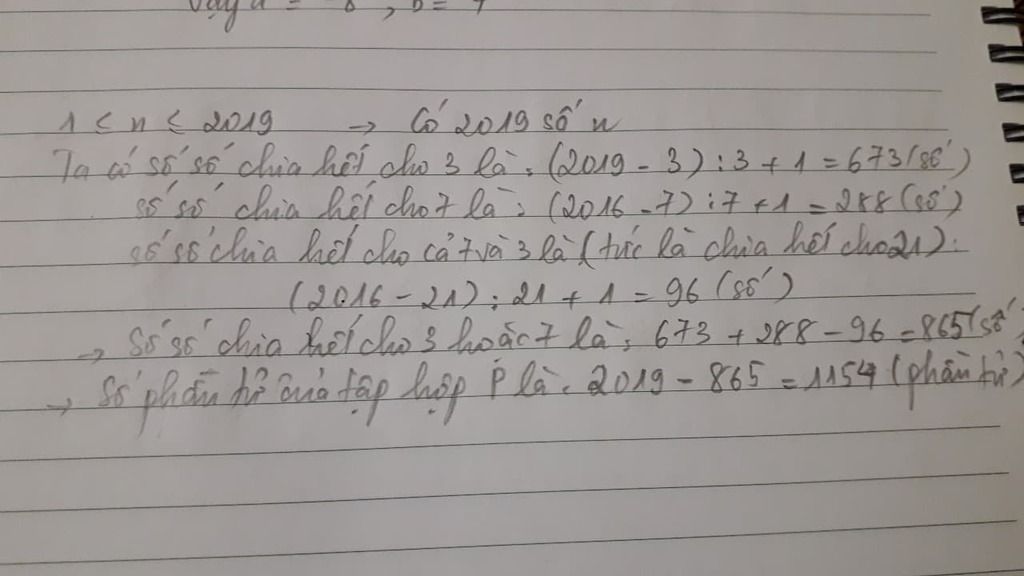 Vậy a = -8, b = 7
1 ≤ n ≤ 2019 → Có 2019 số n
Ta có số số chia hết cho 3 là: (2019 - 3) : 3 + 1 = 673 (số)
số số chia hết cho 7 là: (2016 - 7) : 7 + 1 = 288 (số)
số số chia hết cho cả 7 và 3 là (tức là chia hết cho 21):
(2016 - 21) : 21 + 1 = 96 (số)
→ Số số chia hết cho 3 hoặc 7 là: 673 + 288 - 96 = 865 (số)
→ Số phần tử của tập hợp P là: 2019 - 865 = 1154 (phần tử)